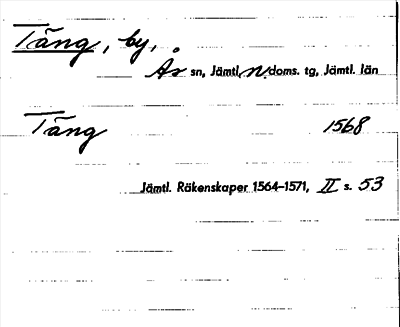 Täng, by,
Ås sn, Jämtl. n. doms. tg, Jämtl. län
Täng 1568
Jämtl. Räkenskaper 1564–1571, II s. 53